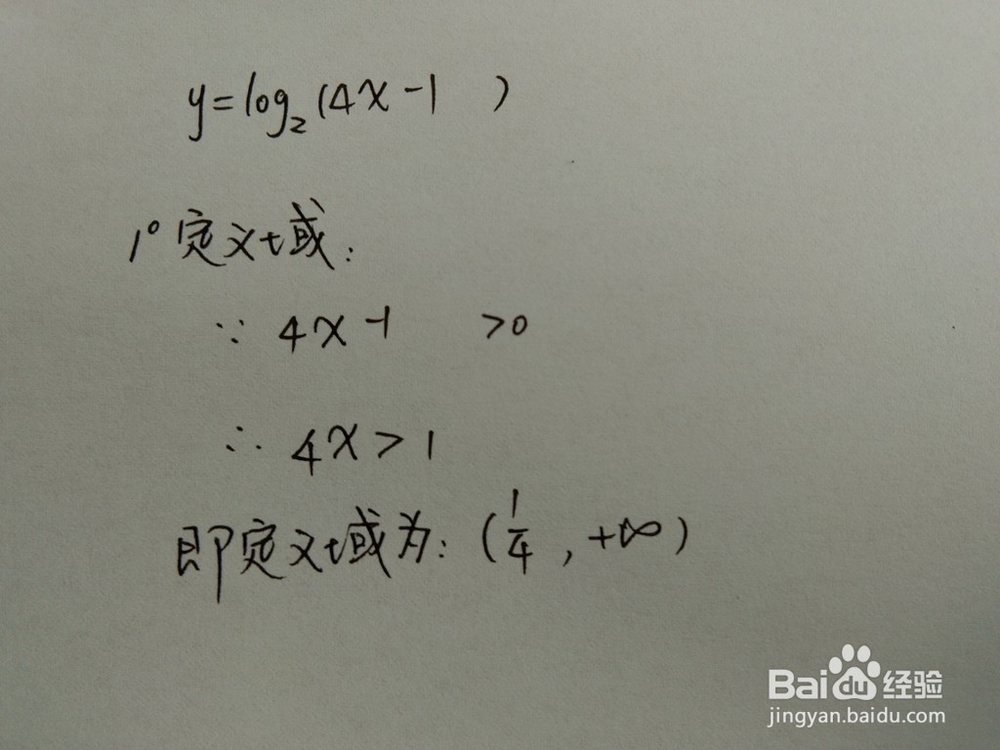 y=log₂(4x-1 )
1° 定义域:
∵ 4x-1 >0
∴ 4x>1
即定义域为: (1/4, +∞)
Baidu经验
jingyan.baidu.com